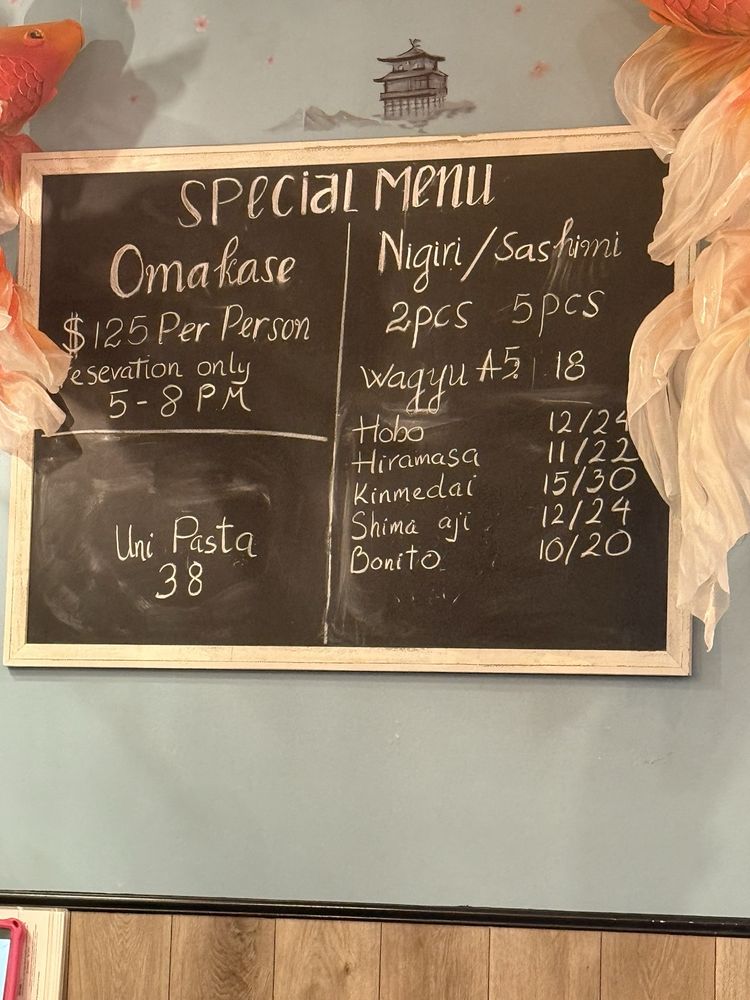 SPECIAL MENU
Omakase
$125 Per Person
esevation only
5-8 PM
Uni Pasta
38
Nigiri/Sashimi
2pcs 5pcs
Wagyu A5 18
Hobo 12/24
Hiramasa 11/22
Kinmedai 15/30
Shima aji 12/24
Bonito 10/20